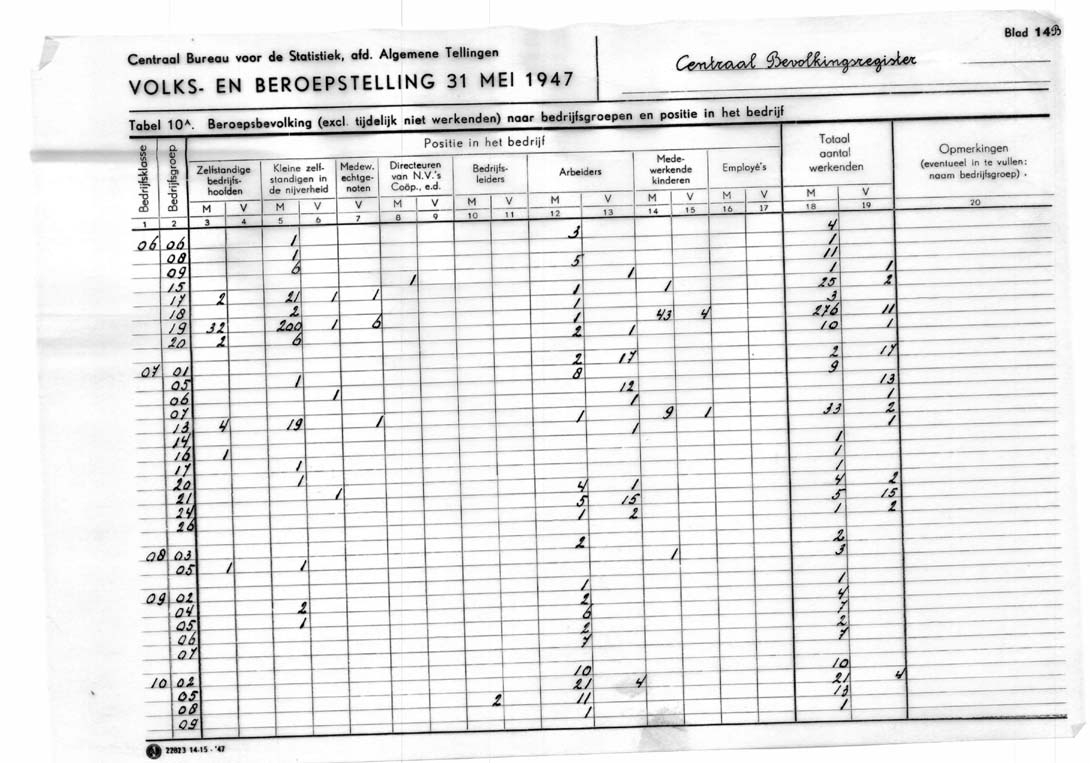 Blad 14B
Centraal Bureau voor de Statistiek, afd. Algemene Tellingen
VOLKS- EN BEROEPSTELLING 31 MEI 1947
Centraal Bevolkingsregister
Tabel 10A. Beroepsbevolking (excl. tijdelijk niet werkenden) naar bedrijfsgroepen en positie in het bedrijf
Bedrijfsklasse
Bedrijfsgroep
Positie in het bedrijf
Zelfstandige bedrijfs-hoofden
Kleine zelf-standigen in de nijverheid
Medew. echtge-noten
Directeuren van N.V.'s Coöp., e.d.
Bedrijfs-leiders
Arbeiders
Mede-werkende kinderen
Employé's
Totaal aantal werkenden
Opmerkingen (eventueel in te vullen: naam bedrijfsgroep).
M V M V V M V M V M V M V M V M V
1 2 3 4 5 6 7 8 9 10 11 12 13 14 15 16 17 18 19 20
06 06 1 3 4
08 1 1
09 6 5 11
15 1 1 1 1
17 2 21 1 1 1 1 25 2
18 2 1 3
19 32 200 1 6 1 43 4 276 11
20 2 6 2 1 10 1
07 01 2 17 2 17
05 1 8 9
06 1 12 13
07 1 1
13 4 19 1 1 9 1 33 2
14 1 1
16 1 1
17 1 1
20 1 1
21 1 4 1 4 2
24 5 15 5 15
26 1 2 1 2
08 03 2 2
05 1 1 1 3
09 02 1 1
04 2 2 4
05 1 6 7
06 2 2
07 7 7
10 02 10 10
05 21 4 21 4
08 2 11 13
09 1 1
22823 14-15-'47